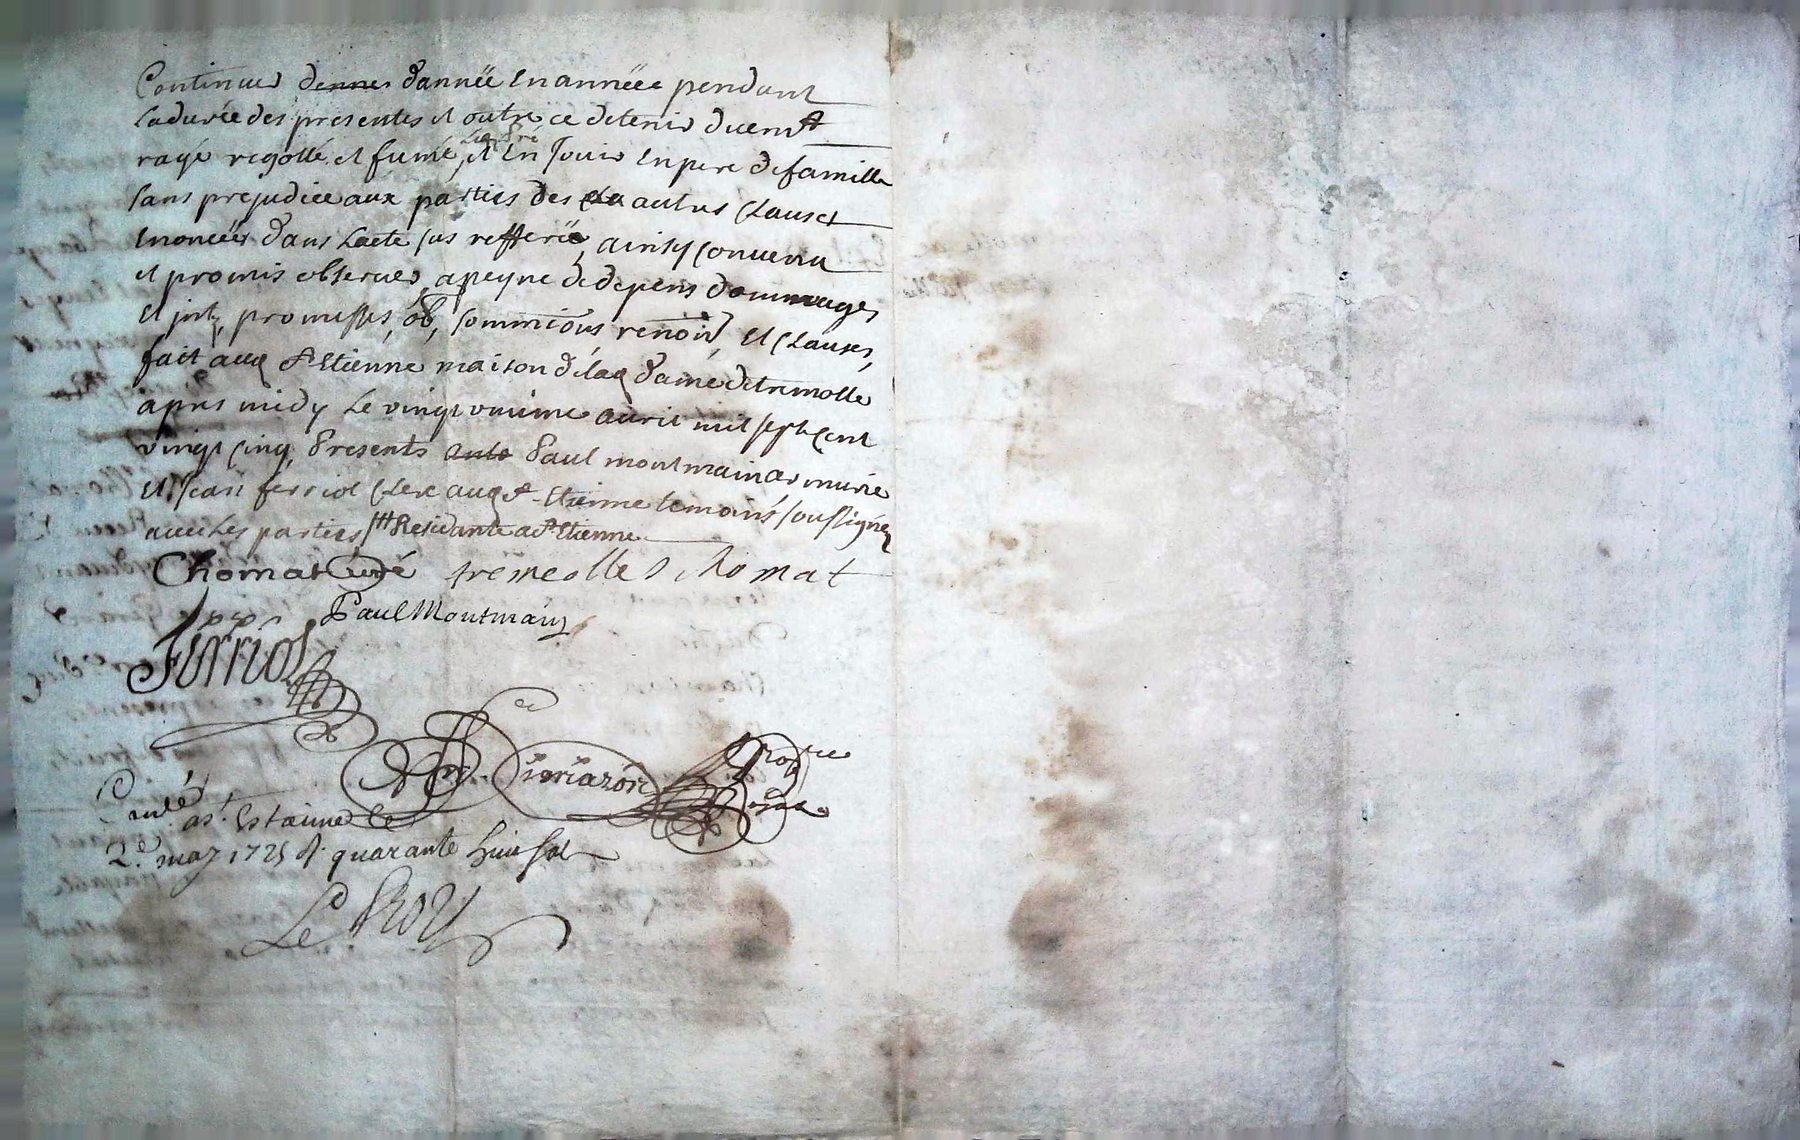 Continuer dannëë En annëëe pendant
Ladurëe des presentes et outre ce detenir duem.t
Led. Pré
rayé rigollé et fumé, et En Jouir En pere defamille
sans prejudice aux parties des autres Clauses
Enoncëës dans Lacte sus refferéë, ainsy Convenu
et promis observer apeyne de depens dommages
Et jnts, promesses, ob, sommions renon, Et Clauses,
fait aud St Etienne maison de lad dame detremolle
apres midy Le vingt unieme avril mil sept Cent
vingt Cinq, Presents Paul montmain armurie
Et Jean ferriol Clerc aud St Etienne temoins soussignez
avec Les parties Residante a St Etienne
Chomat Curé tremolles Chomat
Paul Montmain
ferriol
No.re
Royal
Con.lé a St. Estienne le
2.e may 1725 R. quarante huit sol
Le Roy